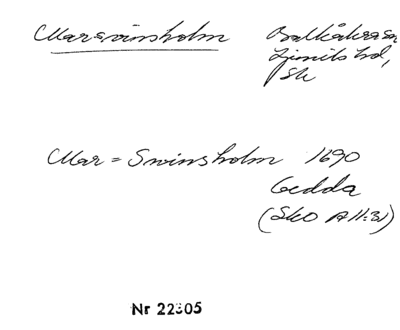 Marsvinsholm Balkåkra sn
Ljunits hd,
Sk
Mar=Swinsholm 1690
Gedda
(SkO A II:31)
Nr 22305